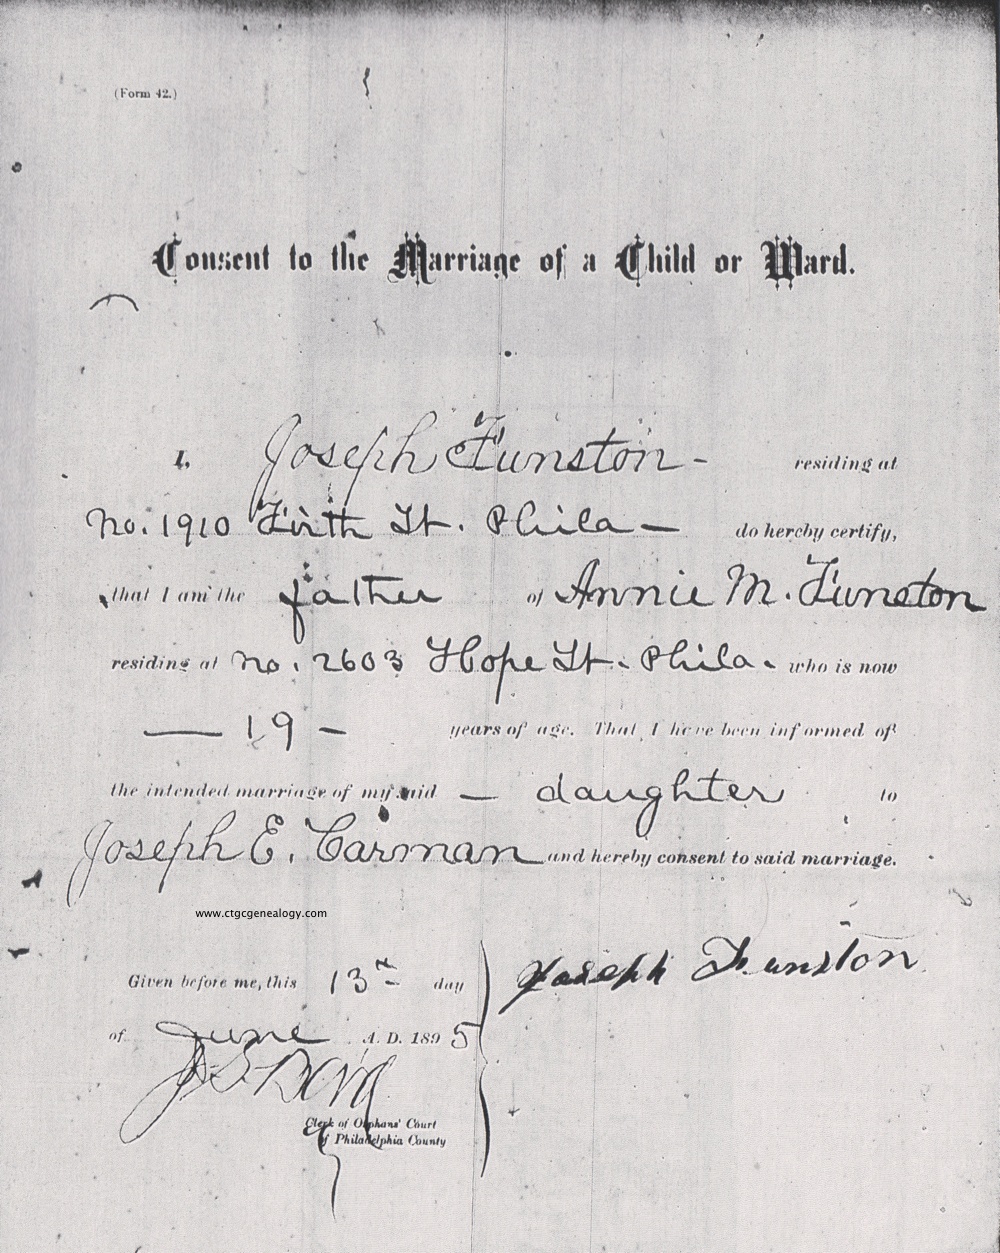 (Form 42.)
Consent to the Marriage of a Child or Ward.
I, Joseph Funston - residing at
No. 1910 Firth St. Phila — do hereby certify,
that I am the father of Annie M. Funston
residing at No. 2603 Hope St. Phila. who is now
— 19 - years of age. That I have been informed of
the intended marriage of my said — daughter to
Joseph E. Carman and hereby consent to said marriage.
www.ctgcgenealogy.com
Given before me, this 13th day
Joseph Funston
of June A. D. 1895
Clerk of Orphans' Court
of Philadelphia County